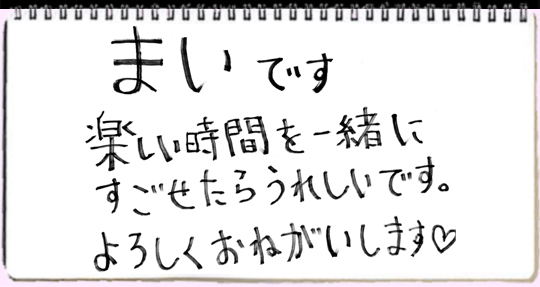 まいです
楽しい時間を一緒に
すごせたらうれしいです。
よろしくおねがいします♡